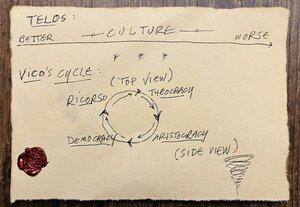 TELOS:
BETTER —CULTURE— WORSE
* * *
VICO'S CYCLE: (TOP VIEW)
RICORSO THEOCRACY
DEMOCRACY ARISTOCRACY
(SIDE VIEW)